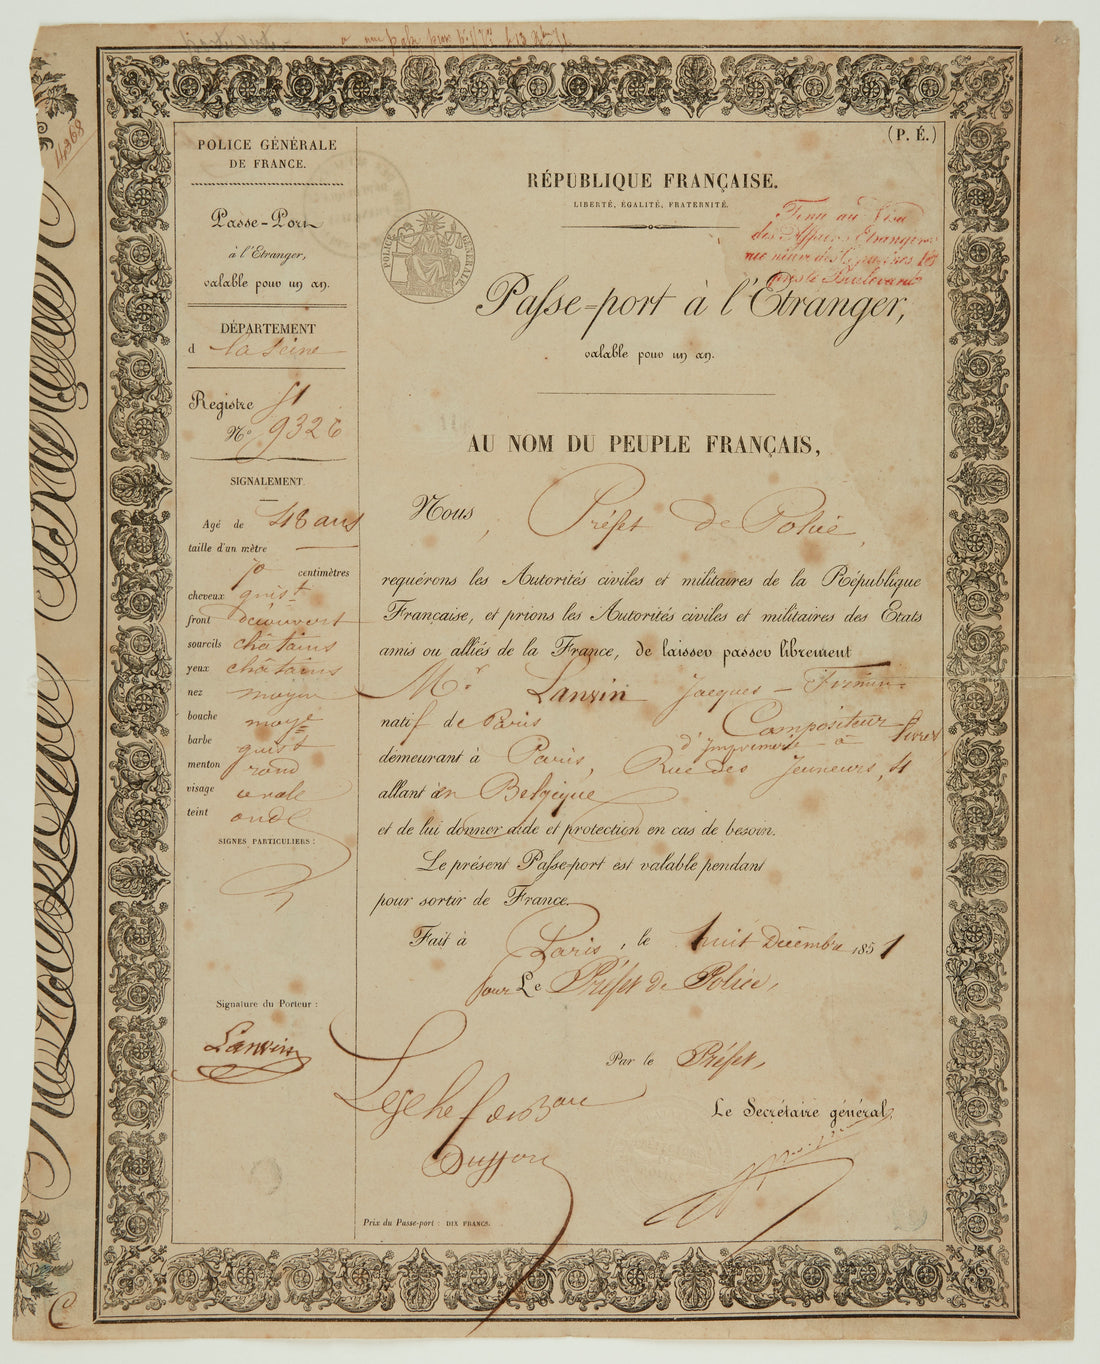 4268
(P. É.)
POLICE GÉNÉRALE
DE FRANCE.
Passe-Port
à l'Etranger,
valable pour un an.
DÉPARTEMENT
d la Seine
Registre 51
N° 9326
SIGNALEMENT.
Agé de 48 ans
taille d'un mètre
70 centimètres
cheveux gris t
front découvert
sourcils châtains
yeux châtains
nez moyen
bouche moy.e
barbe gris t
menton rond
visage ovale
teint ord.e
SIGNES PARTICULIERS :
Signature du Porteur :
Lanvin
RÉPUBLIQUE FRANÇAISE.
LIBERTÉ, ÉGALITÉ, FRATERNITÉ.
POLICE GÉNÉRALE.
Tenu au Visa
des Affaires Etrangères
rue neuve des Capucines
près le Boulevard
Passe-port à l'Etranger,
valable pour un an.
AU NOM DU PEUPLE FRANÇAIS,
Nous, Préfet de Police,
requérons les Autorités civiles et militaires de la République
Française, et prions les Autorités civiles et militaires des Etats
amis ou alliés de la France, de laisser passer librement
M.r Lanvin Jacques-Firmin
natif de Paris Compositeur
d'Imprimerie à livres
demeurant à Paris, Rue des Jeuneurs, 4
allant en Belgique
et de lui donner aide et protection en cas de besoin.
Le présent Passe-port est valable pendant
pour sortir de France.
Fait à Paris, le huit Décembre 1851
pour Le Préfet de Police,
Par le Préfet,
Le Secrétaire général
Le Chef du Bureau
Prix du Passe-port : DIX FRANCS.